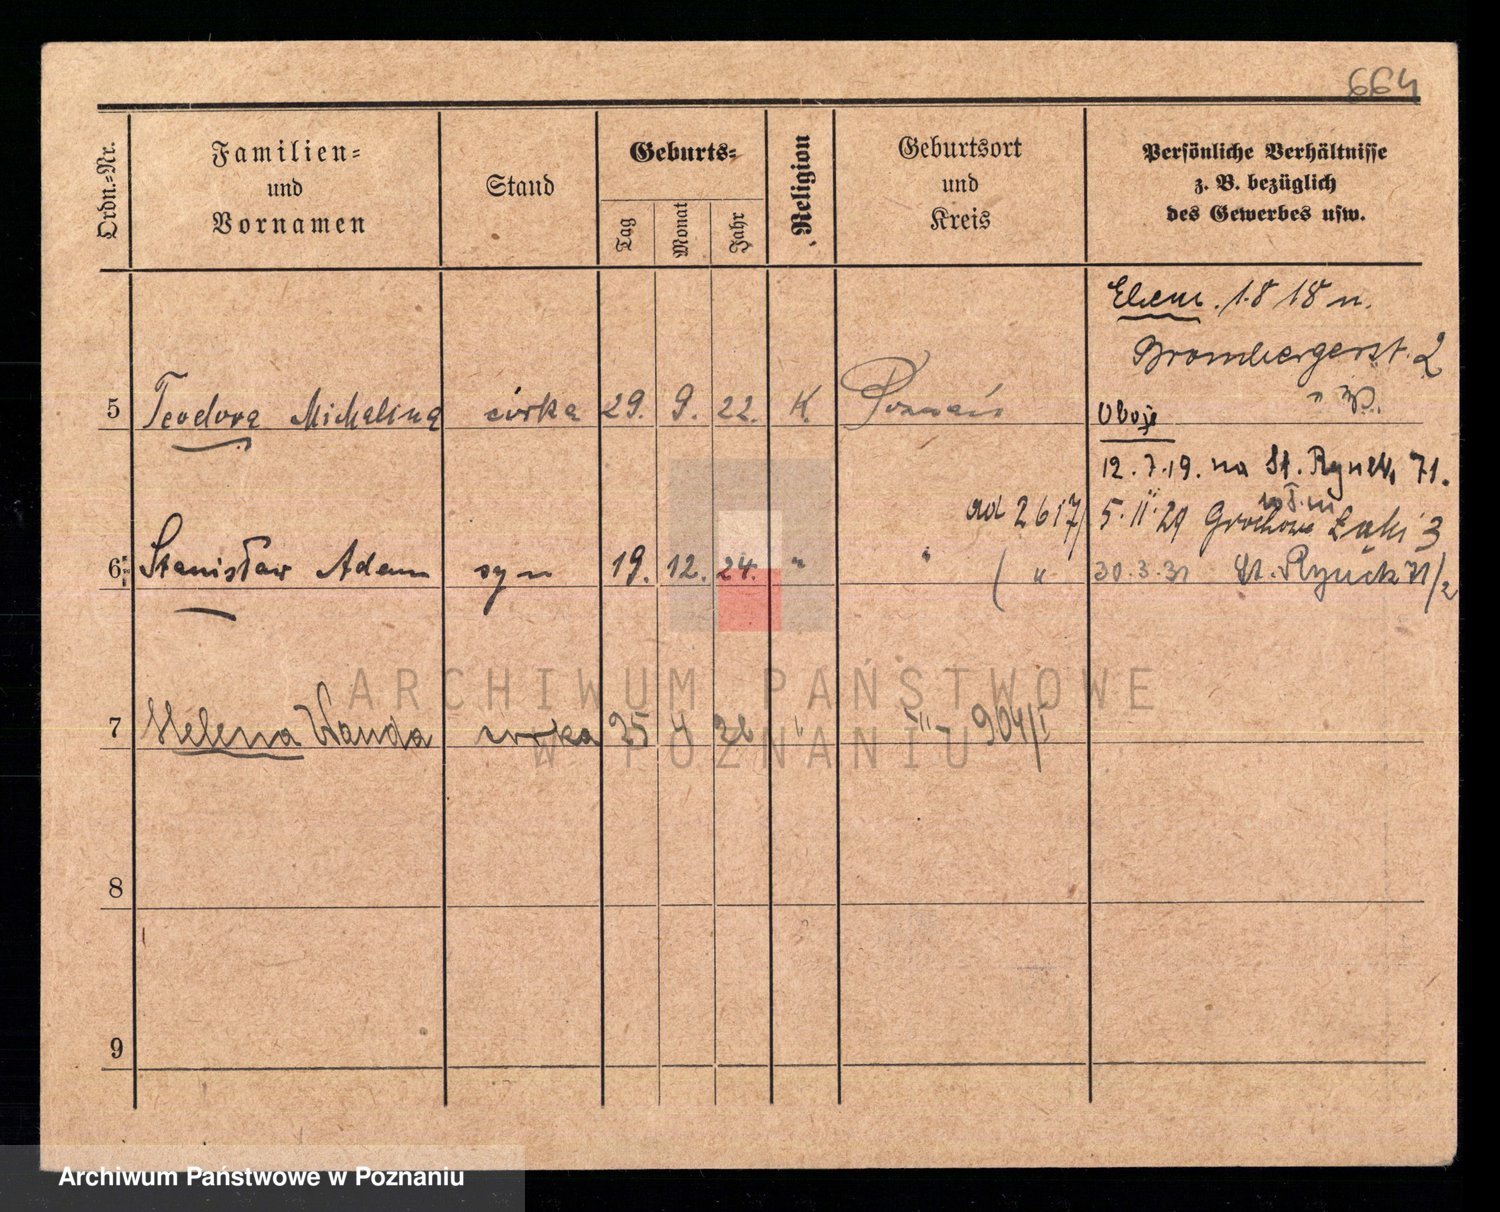 664
Ordn.-Nr.
Familien-
und
Vornamen
Stand
Geburts-
Tag
Monat
Jahr
Religion
Geburtsort
und
Kreis
Persönliche Verhältnisse
z. B. bezüglich
des Gewerbes usw.
1.8 18 n.
Brombergerst. 2
5 Teodora Michalina córka 29. 9. 22. K. Poznań
Oboje
12.7.19. na St. Rynek, 71.
ad 2617/ 5.11.29 Grochowe Łąki 3
6 Stanisław Adam syn 19. 12. 24. " "
( " 30.3.31 St. Rynek 71/2
7 Helena Wanda córka 25 4 26 " " - 904/I
8
9
ARCHIWUM PAŃSTWOWE
W POZNANIU
Archiwum Państwowe w Poznaniu